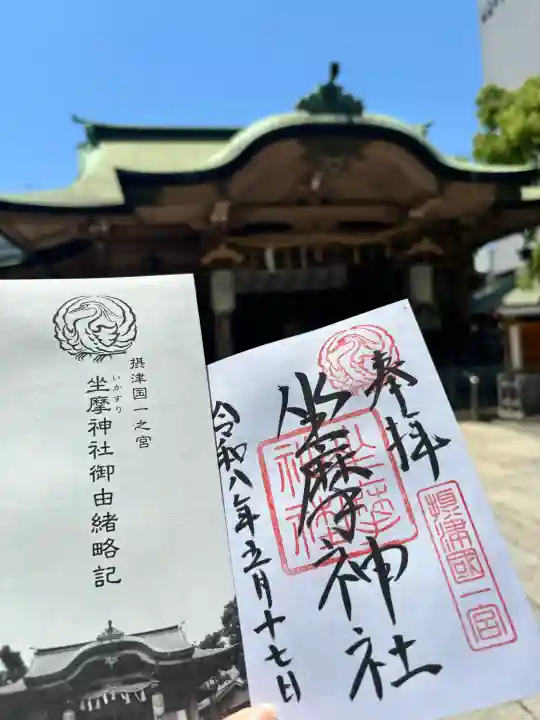 摂津国一之宮
いかすり
坐摩神社御由緒略記
奉拝
摂津國一宮
坐摩神社
坐摩神社
令和八年五月十七日